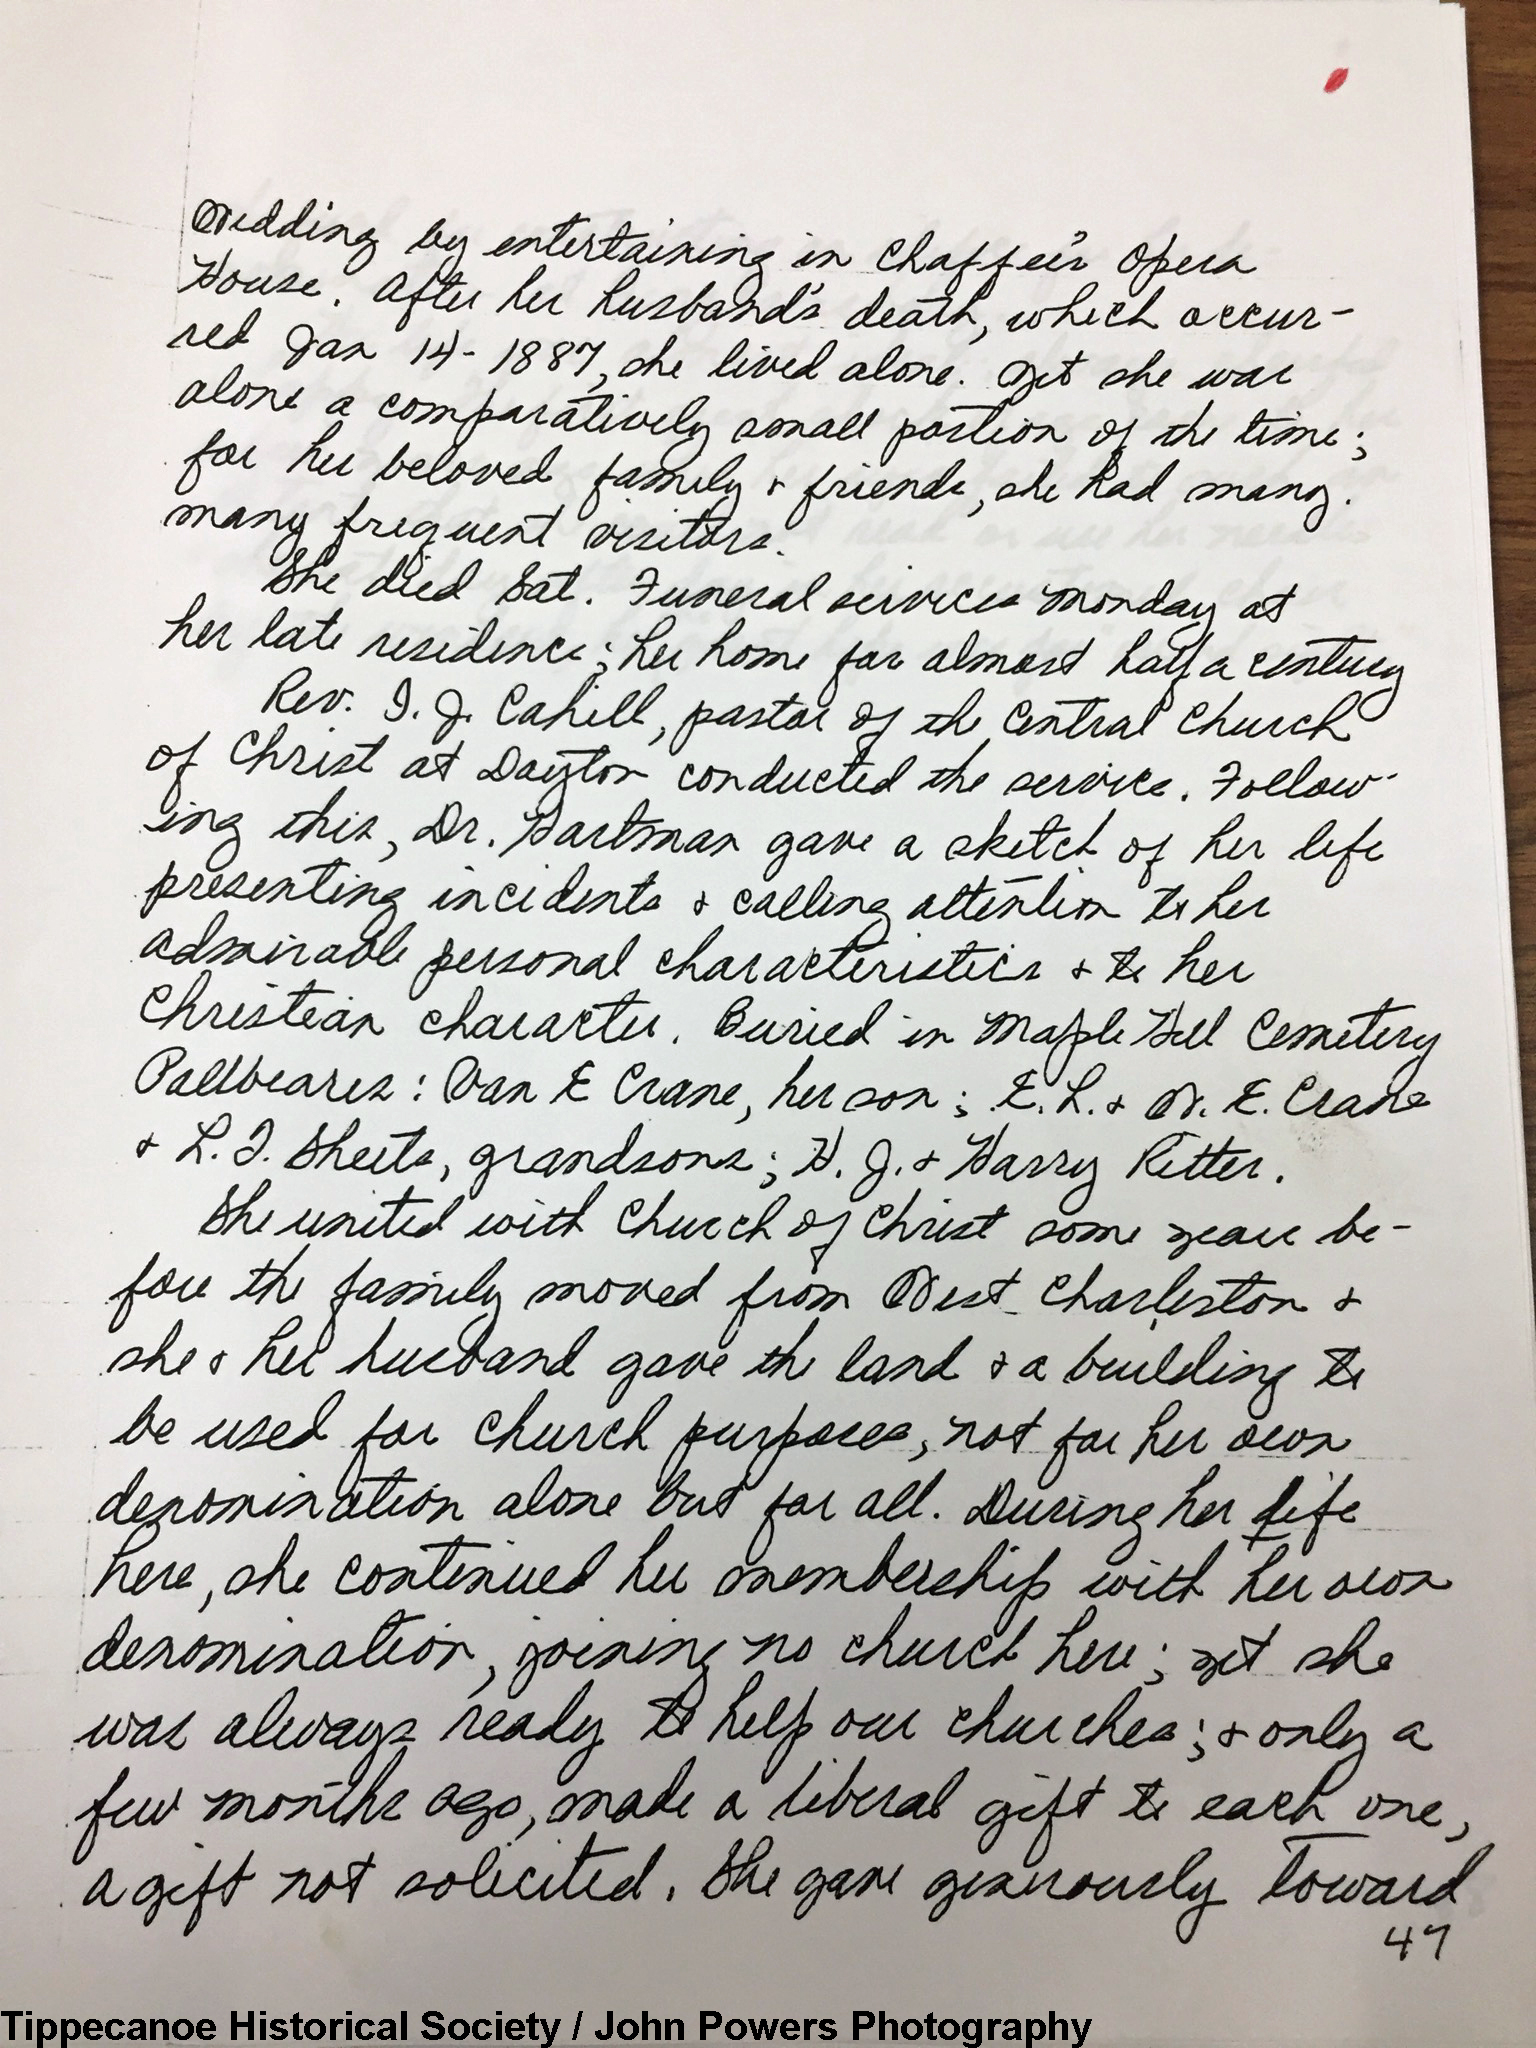 Wedding by entertaining in Chaffee's Opera
House. After her husband's death, which occur-
red Jan 14-1887, she lived alone. Yet she was
alone a comparatively small portion of the time;
for her beloved family & friends, she had many.
many frequent visitors.
She died Sat. Funeral services Monday at
her late residence; her home for almost half a century
Rev. I. J. Cahill, pastor of the Central Church
of Christ at Dayton conducted the service. Follow-
ing this, Dr. Hartman gave a sketch of her life
presenting incidents & calling attention to her
admirable personal characteristics & to her
Christian character. Buried in Maple Hill Cemetery
Pallbeares: Van E Crane, her son; E. L. & W. E. Crane
& L. F. Sheets, grandsons; H. J. & Harry Ritter.
She united with Church of Christ some years be-
fore the family moved from West Charleston &
she & her husband gave the land & a building to
be used for church purposes, not for her own
denomination alone but for all. During her life
here, she continued her membership with her own
denomination, joining no church here; yet she
was always ready to help our churches; & only a
few months ago, made a liberal gift to each one,
a gift not solicited. She gave generously toward
47
Tippecanoe Historical Society / John Powers Photography